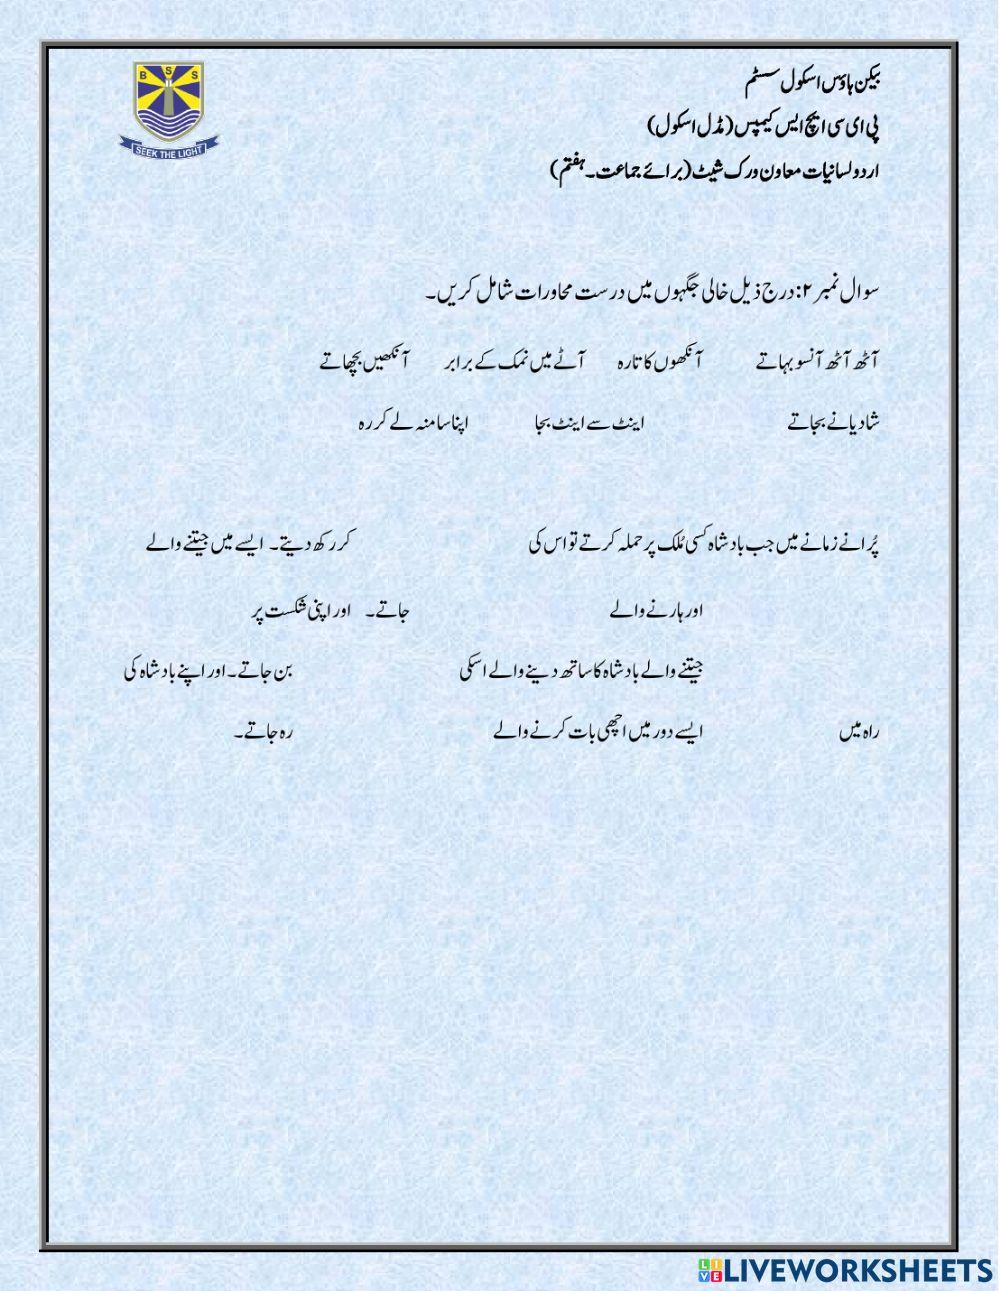 B S S
SEEK THE LIGHT
بیکن ہاؤس اسکول سسٹم
پی ای سی ایچ ایس کیمپس (مڈل اسکول)
اردو لسانیات معاون ورک شیٹ (برائے جماعت۔ ہفتم)
سوال نمبر ۲: درج ذیل خالی جگہوں میں درست محاورات شامل کریں۔
آٹھ آٹھ آنسو بہاتے آنکھوں کا تارہ آٹے میں نمک کے برابر آنکھیں بچھاتے
شادیانے بجاتے اینٹ سے اینٹ بجا اپنا سا منہ لے کر رہ
پُرانے زمانے میں جب بادشاہ کسی مُلک پر حملہ کرتے تو اس کی کر رکھ دیتے۔ ایسے میں جیتنے والے
اور ہارنے والے جاتے۔ اور اپنی شکست پر
جیتنے والے بادشاہ کا ساتھ دینے والے اسکی بن جاتے۔ اور اپنے بادشاہ کی
راہ میں ایسے دور میں اچھی بات کرنے والے رہ جاتے۔
LIVEWORKSHEETS